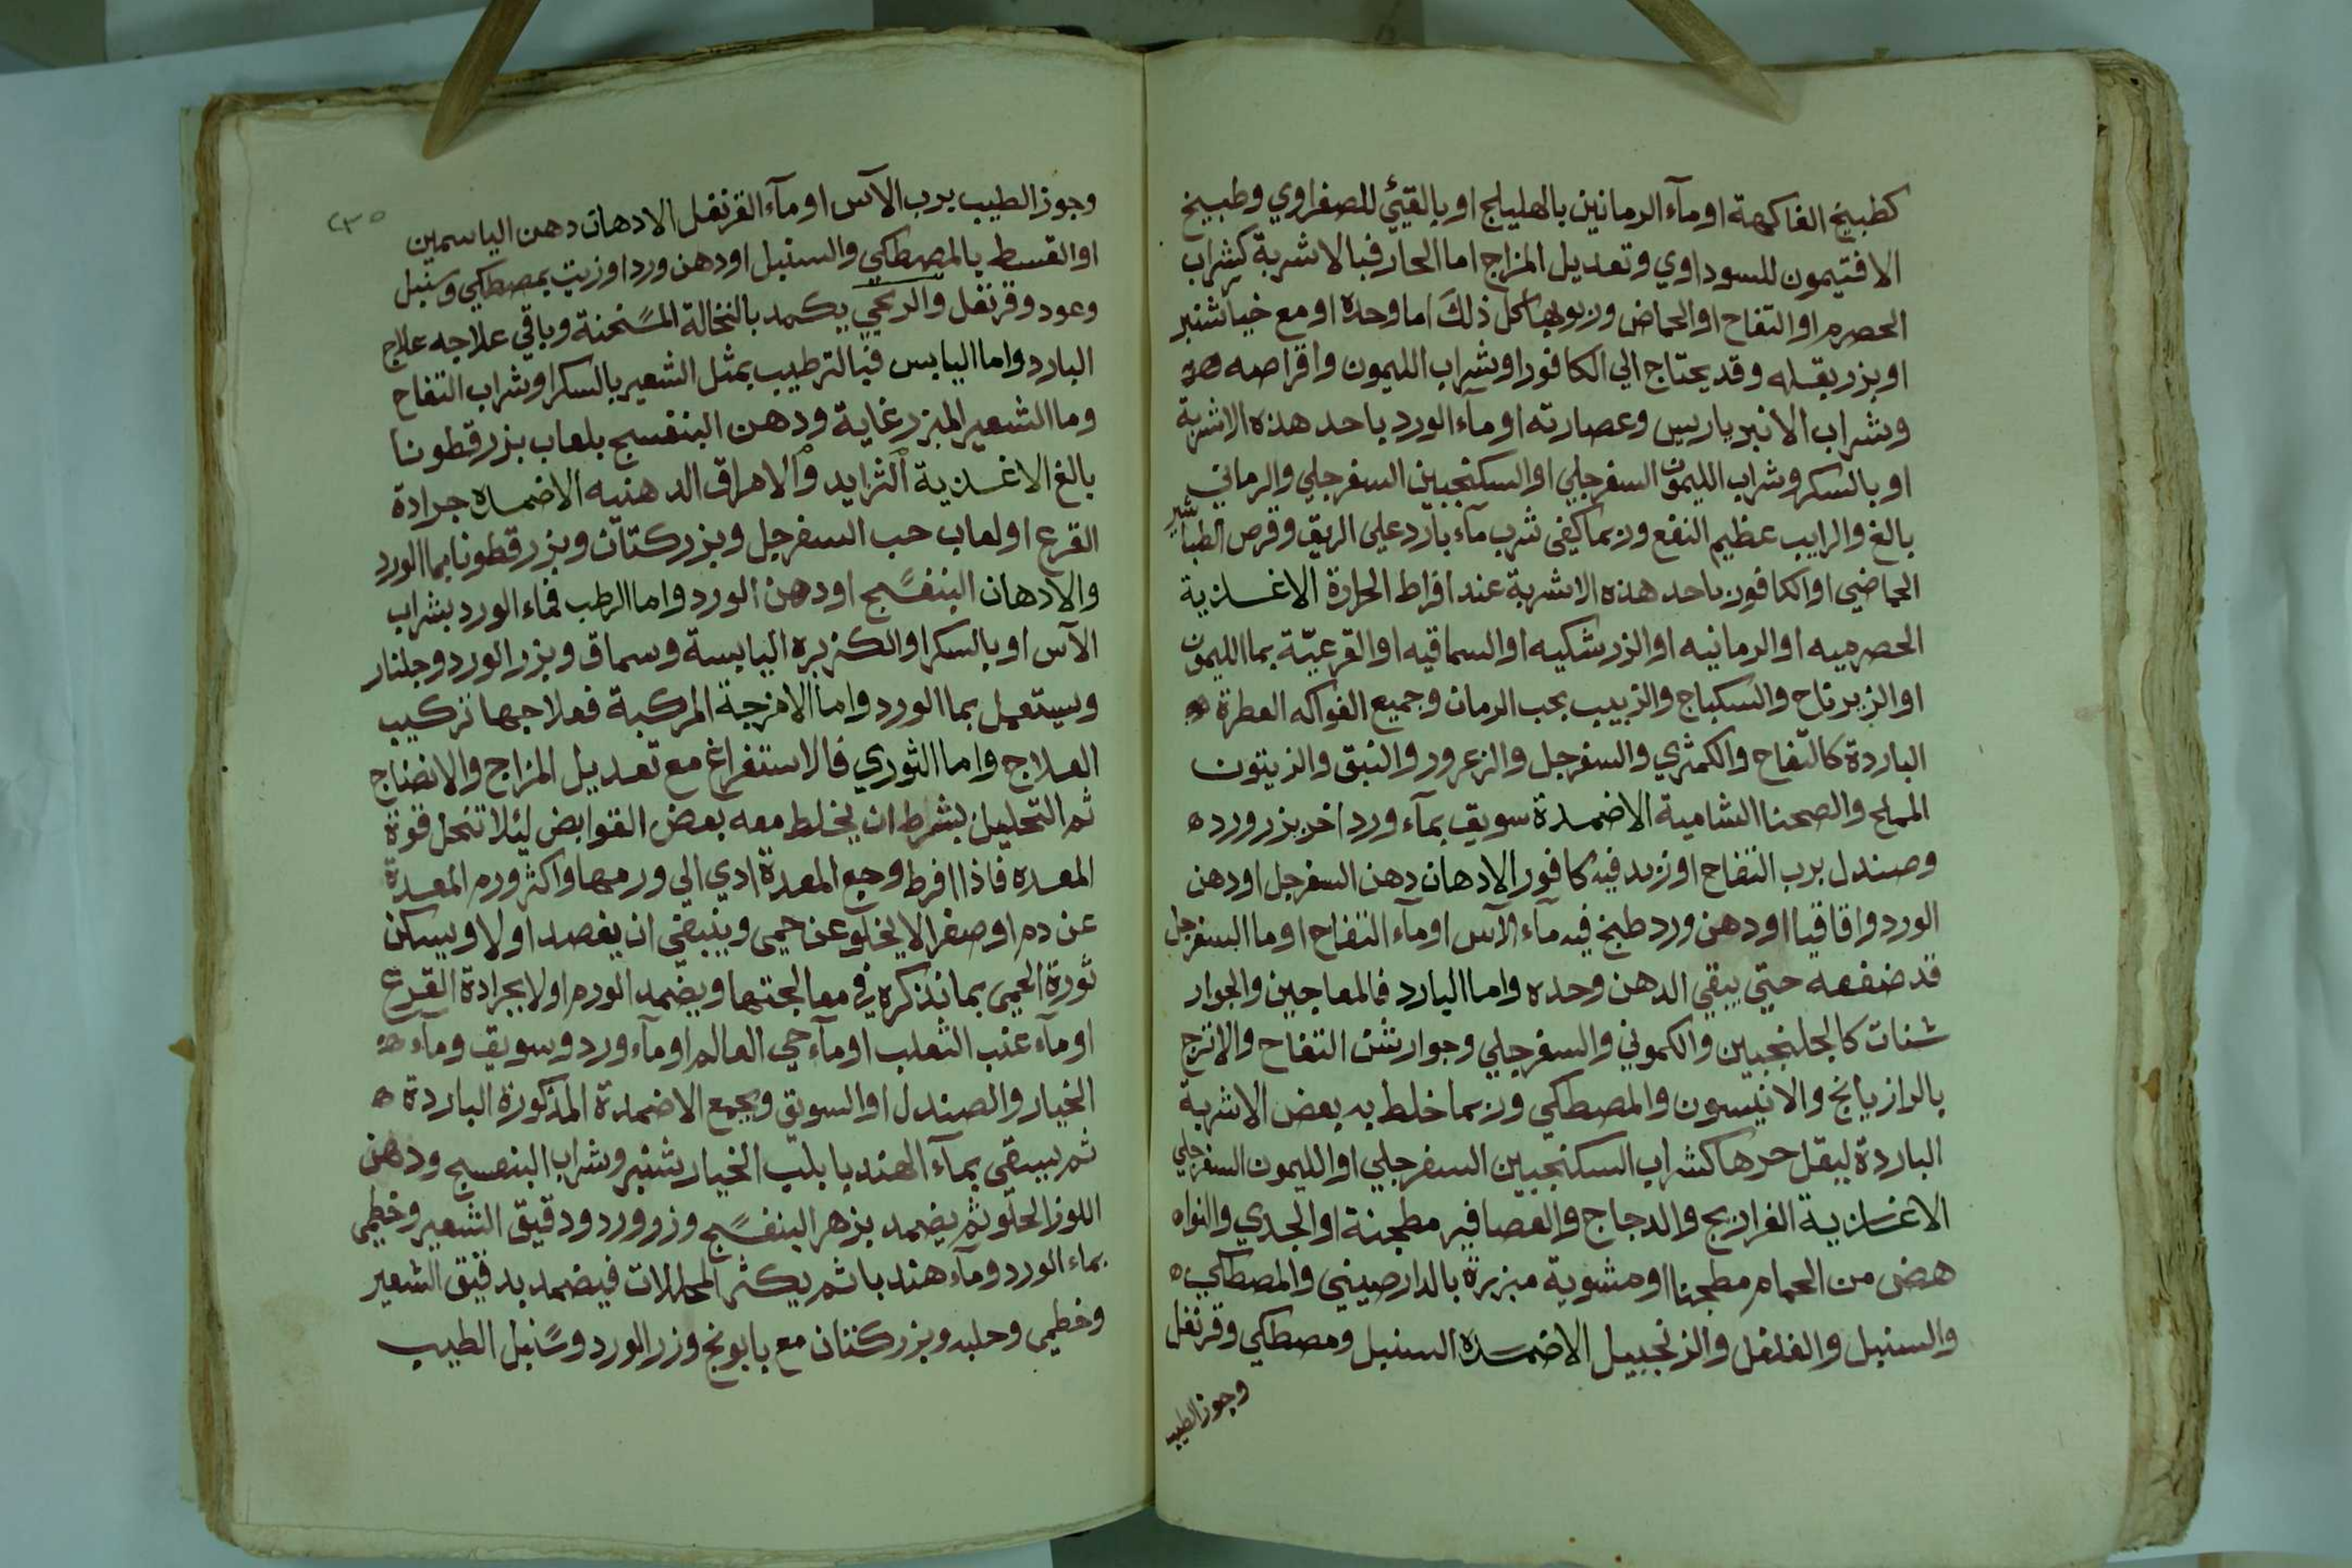 كطبيخ الفاكهة او مآء الرمانين بالهليلج او بالقيئ للصفراوي وطبيخ
الافتيمون للسوداوي وتعديل المزاج اما الحار فبالاشربة كشراب
الحصرم او التفاح او الحماض وربوبها كل ذلك اما وحدة او مع خيار شنبر
او بزر بقله وقد يحتاج الي الكافور او شراب الليمون واقراصه
وشراب الانبر باريس وعصارته او مآء الورد باحد هذه الاشربة
او بالسكر وشراب الليمون السفرجلي او السكنجبين السفرجلي والرماني
بالغ والرايب عظيم النفع وربما كيفى شرب مآء بارد علي الريق وقرص الطباشير
الحماضي او الكافور باحد هذه الاشربة عند افراط الحرارة الاغذية
الحصرميه او الرمانيه او الزرشكيه او السماقيه او القرعيّة بما الليمون
او الزيرباج والسكباج والزبيب بحب الرمان وجميع الفواكه العطرة
الباردة كالتفاح والكمثري والسفرجل والزعرور والنبق والزيتون
المملح والصحنا الشامية الاضمدة سويق بمآء ورد اخر بزر ورد
وصندل برب التفاح او زيد فيه كافور الادهان دهن السفرجل او دهن
الورد واقاقيا او دهن ورد طبخ فيه مآء الآس او مآء التفاح او ما السفرجل
قد ضفعه حتي يبقي الدهن وحده واما البارد فالمعاجين والجوار
شنات كالجلنجبين والكموني والسفرجلي وجوارشن التفاح والاترج
بالرازيانج والانيسون والمصطكي وربما خلط به بعض الاشربة
الباردة ليقل حرها كشراب السكنجبين السفرجلي او الليمون السفرجلي
الاغذية الفراريج والدجاج والعصافير مطجنة او الجدي والنواه
هضى من الحمام مطجنا او مشوية مبزرة بالدارصيني والمصطكي
والسنبل والفلفل والزنجبيل الاضمده السنبل ومصطكي وقرنفل
وجوز الطيب
٢٣٥
وجوز الطيب برب الآس او مآء القرنفل الادهان دهن الياسمين
او القسط بالمصطكي والسنبل او دهن ورد او زيت بمصطكي وسنبل
وعود وقرنفل والريحي يكمد بالنخالة المسخنة وباقي علاجه علاج
البارد واما اليابس فبالترطيب بمثل الشعير بالسكر او شراب التفاح
وما الشعير المبزر غاية ودهن البنفسج بلعاب بزر قطونا
بالغ الاغذية الثرايد والامراق الدهنيه الاضمده جرادة
القرع او لعاب حب السفرجل وبزر كتان وبزر قطونا بما الورد
والادهان البنفسج او دهن الورد واما الرطب فماء الورد بشراب
الآس او بالسكر او الكزبره اليابسة وسماق وبزر الورد وجلنار
ويستعمل بما الورد واما الامزجة المركبة فعلاجها تركيب
العلاج واما الثوري فالاستفراغ مع تعديل المزاج والانضاج
ثم التحليل بشرط ان يخلط معه بعض القوابض ليلا تنحل قوة
المعده فاذا افرط وجع المعدة ادي الي ورمها واكثر ورم المعدة
عن دم او صفرا لا يخلو عن حمى وينبغي ان يفصد اولا ويسكن
ثورة الحمى بما نذكره في معالجتها ويضمد الورم اولا بجرادة القرع
او مآء عنب الثعلب او مآء حي العالم او مآء ورد وسويق ومآء
الخيار والصندل او السويق وبجمع الاضمدة المذكورة الباردة
ثم يسقى بمآء الهندبا بلب الخيار شنبر وشراب البنفسج ودهن
اللوز الحلو ثم يضمد بزهر البنفسج وزر ورد ودقيق الشعير وخطمى
بماء الورد ومآء هندبا ثم يكثر المحللات فيضمد بدقيق الشعير
وخطمي وحلبه وبزر كتان مع بابونج وزر الورد وسنبل الطيب